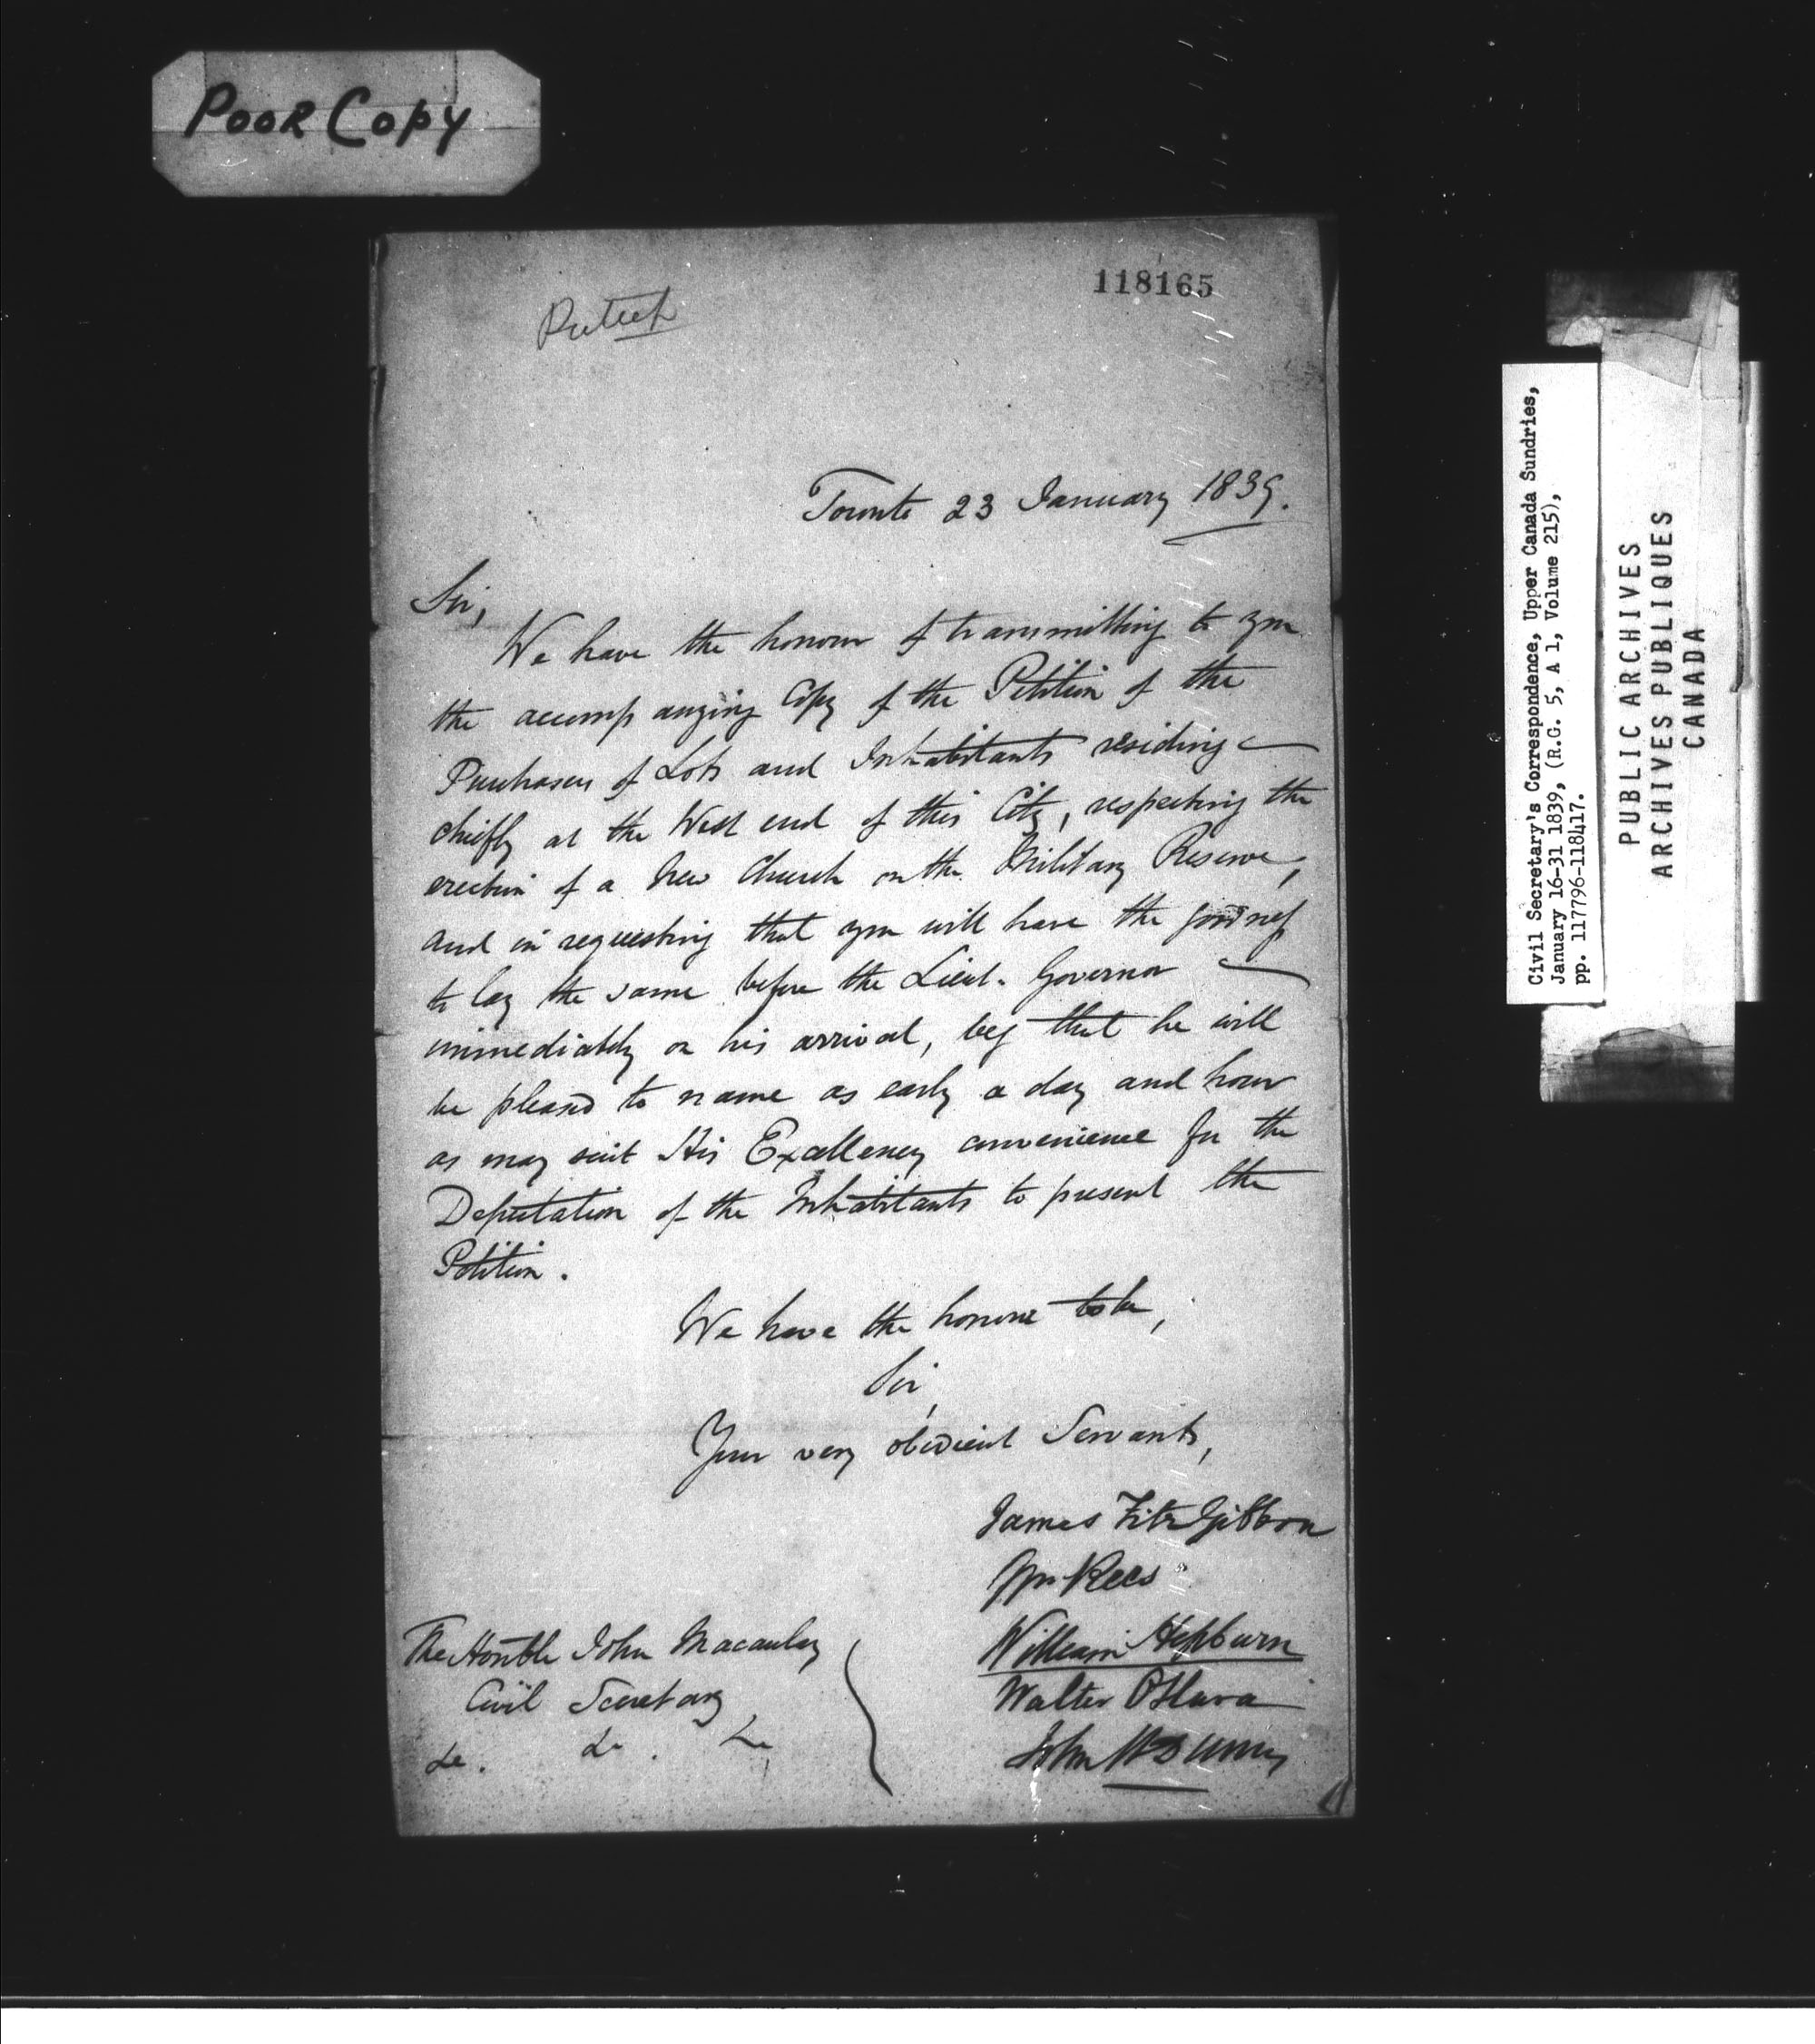 Poor Copy
118165
Toronto 23 January 1839.
Sir,
We have the honour of transmitting to you
the accompanying Copy of the Petition of the
Purchasers of Lots and Inhabitants residing
chiefly at the West end of this City, respecting the
erection of a New Church on the Military Reserve,
and in requesting that you will have the goodness
to lay the same before the Lieut. Governor
immediately on his arrival, beg that he will
be pleased to name as early a day and hour
as may suit His Excellency convenience for the
Deputation of the Inhabitants to present the
Petition.
We have the honour to be,
Sir,
Your very obedient Servants,
James FitzGibbon
Wm Rees
William Hepburn
Walter O'Hara
John H Dunn
The Honble John Macaulay
Civil Secretary
&c. &c. &c
Civil Secretary's Correspondence, Upper Canada Sundries,
January 16-31 1839, (R.G. 5, A 1, Volume 215),
pp. 117796-118417.
PUBLIC ARCHIVES
ARCHIVES PUBLIQUES
CANADA